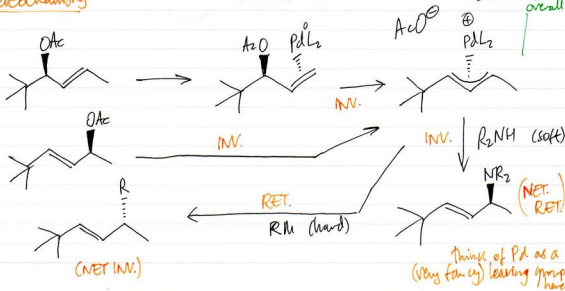 overall
OAc
AcO
PdL₂
0
AcO⊖
⊕
PdL₂
INV.
OAc
INV.
INV.
R₂NH (soft)
R
RET.
RM (hard)
NR₂
(NET. RET.)
(NET INV.)
think of Pd as a
(very fancy) leaving group
here